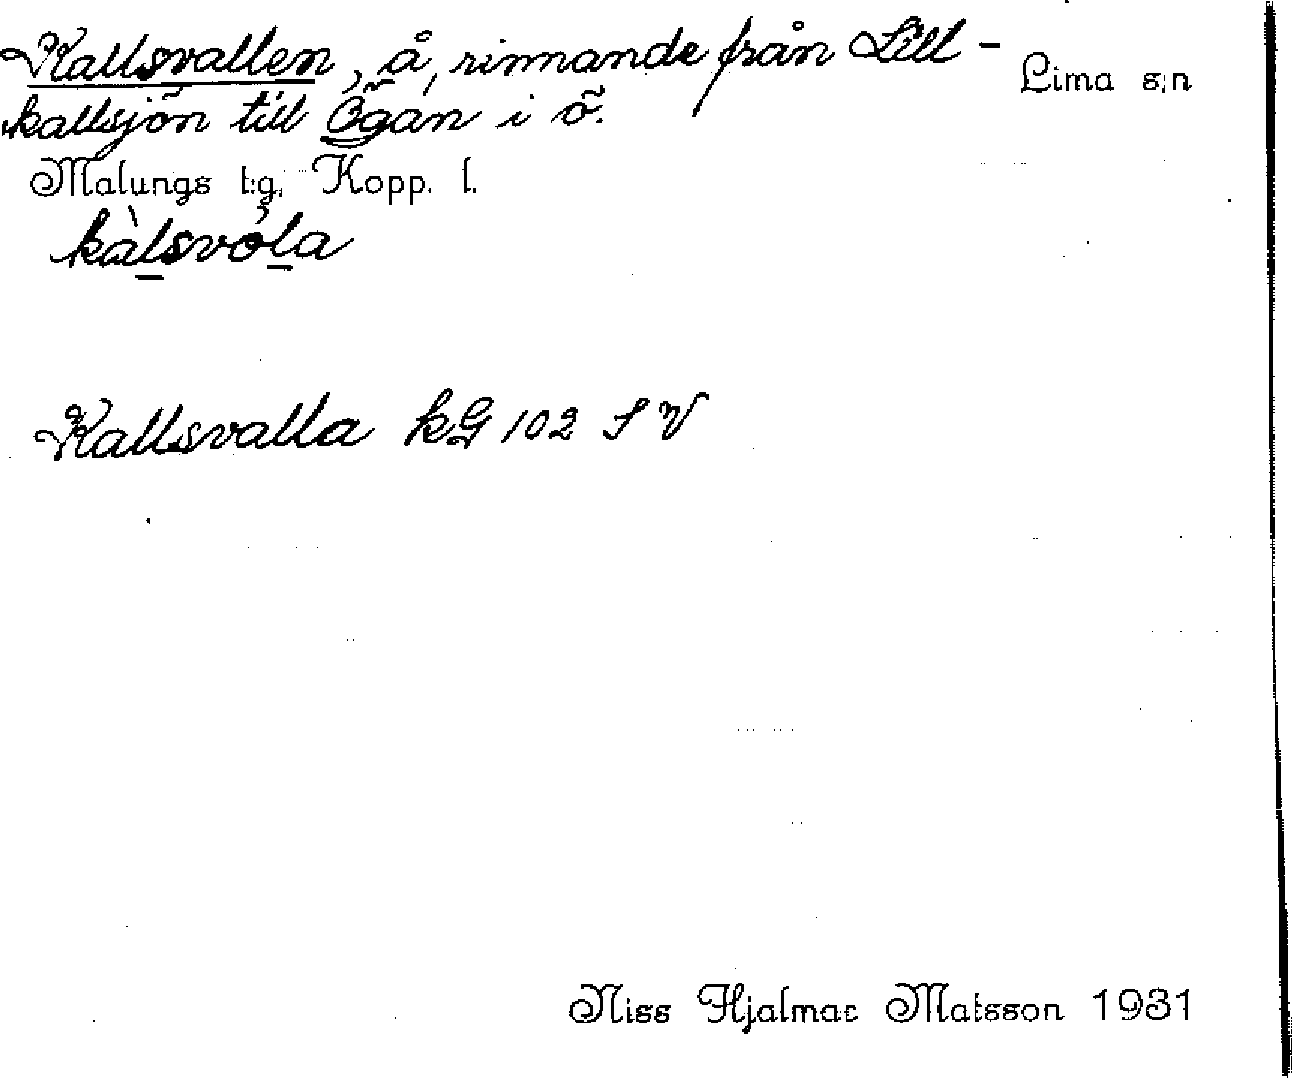 Kallsvallen, å, rinnande från Lill-
Lima s:n
kallsjön till Ögån i ö.
Malungs t:g. Kopp. l.
kàlsvóla
Kallsvalla kG 102 S V
Niss Hjalmar Matsson 1931